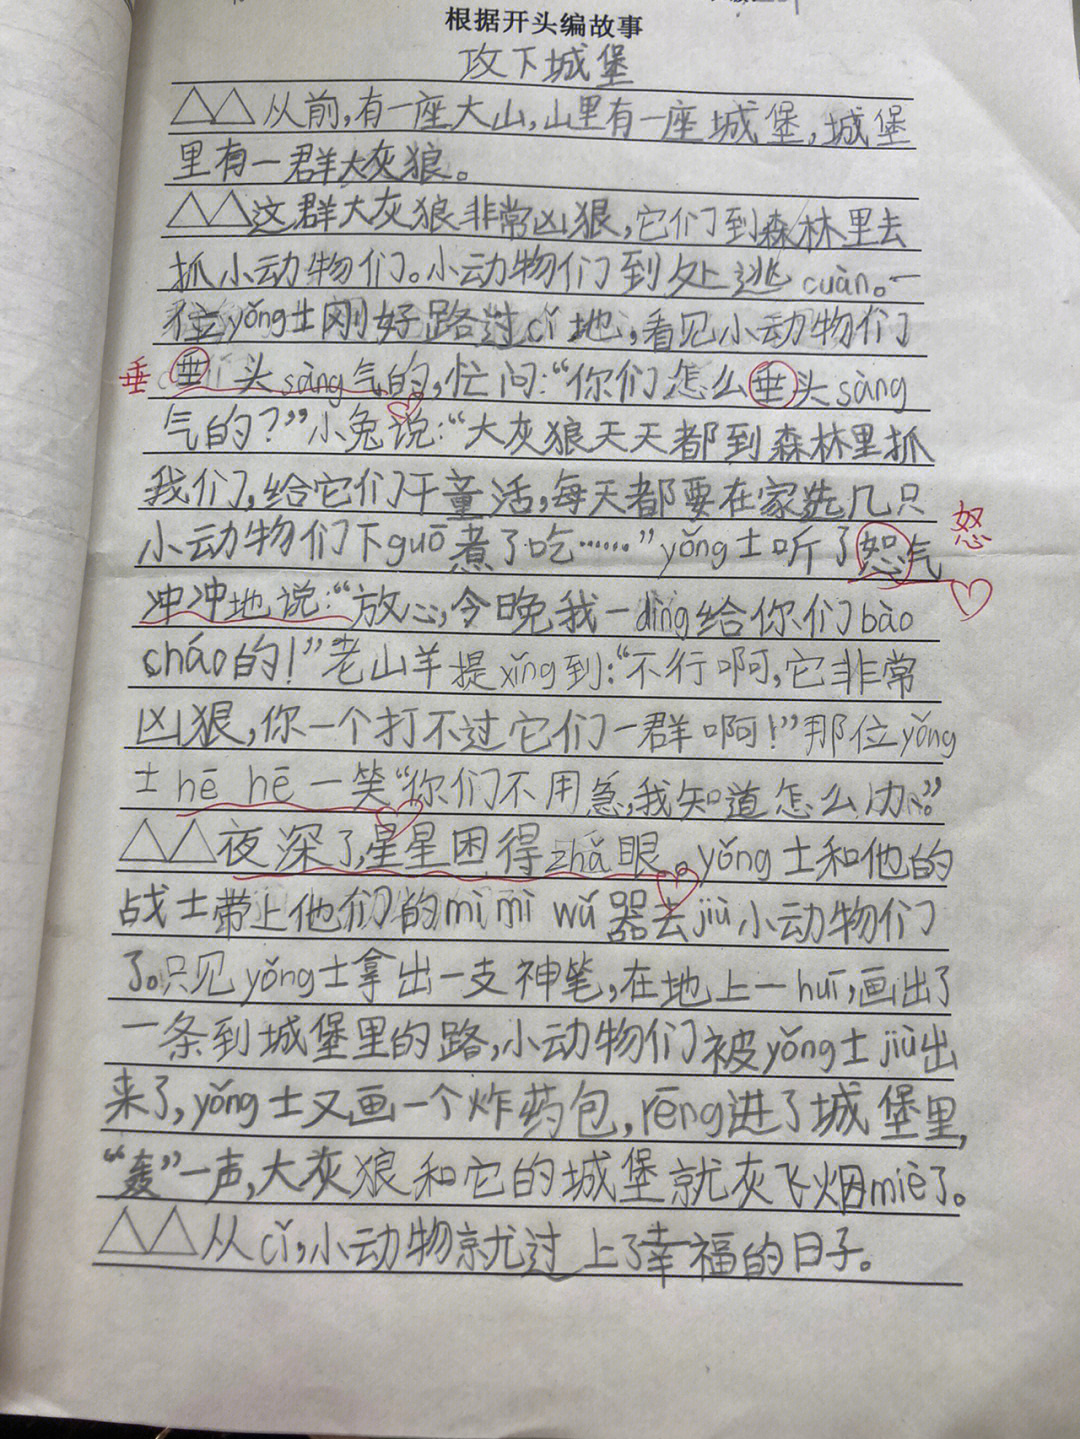 根据开头编故事
攻下城堡
△△从前,有一座大山,山里有一座城堡,城堡
里有一群大灰狼。
△△这群大灰狼非常凶狠,它们到森林里去
抓小动物们。小动物们到处逃cuàn。一
位yǒng士刚好路过cǐ地,看见小动物们
垂 垂头sàng气的,忙问:“你们怎么垂头sàng
气的?”小兔说:“大灰狼天天都到森林里抓
我们,给它们干童活,每天都要在家选几只
小动物们下guō煮了吃……”yǒng士听了怒气
怒
冲冲地说:“放心,今晚我一dìng给你们bào
cháo的!”老山羊提xǐng到:“不行啊,它非常
凶狠,你一个打不过它们一群啊!”那位yǒng
士hē hē一笑“你们不用急,我知道怎么办。”
△△夜深了,星星困得zhǎ眼。yǒng士和他的
战士带上他们的mì mì wǔ器去jiù小动物们
了。只见yǒng士拿出一支神笔,在地上一huī,画出了
一条到城堡里的路,小动物们被yǒng士jiù出
来了,yǒng士又画一个炸药包,rēng进了城堡里,
“轰”一声,大灰狼和它的城堡就灰飞烟miè了。
△△从cǐ,小动物就过上了幸福的日子。